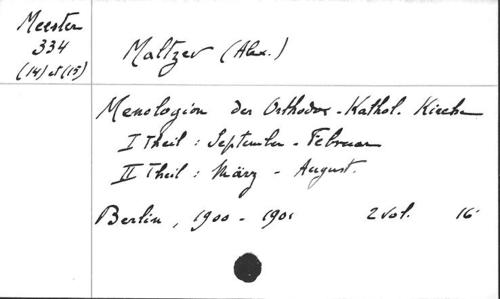 Meester
334
(14) et (15)
Maltzev (Alex.)
Menologion der Orthodox-Kathol. Kirche
I Theil : September - Februar
II Theil : März - August.
Berlin, 1900 - 1901 2 vol. 16°